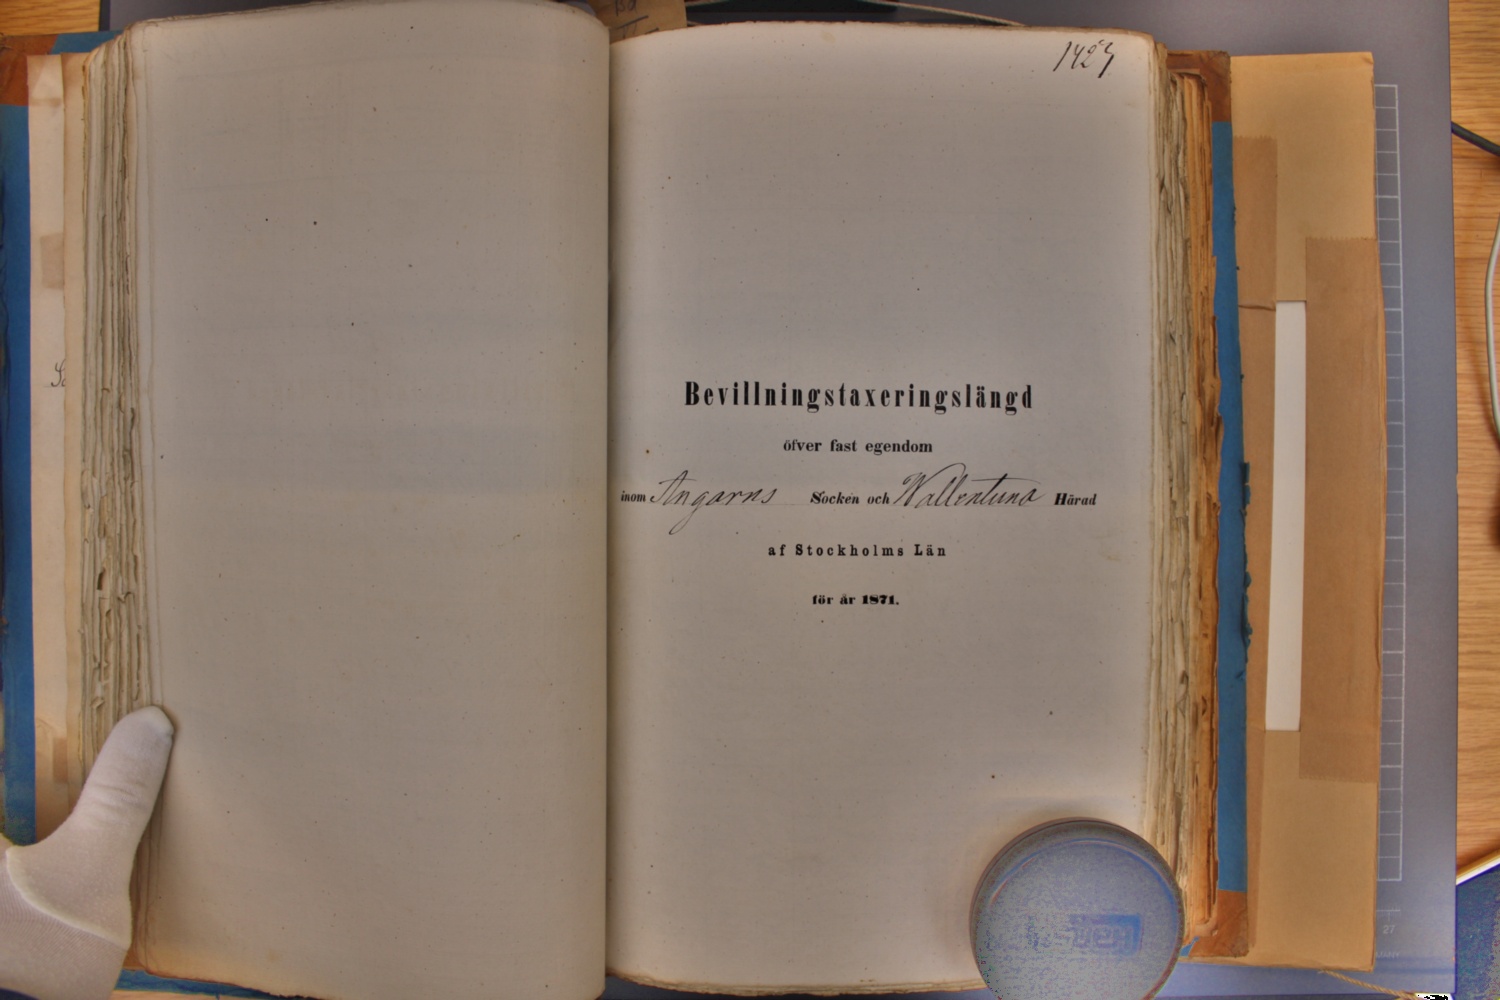 1427
Bevillningstaxeringslängd
öfver fast egendom
inom Angarns Socken och Wallentuna Härad
af Stockholms Län
för år 1871.
27